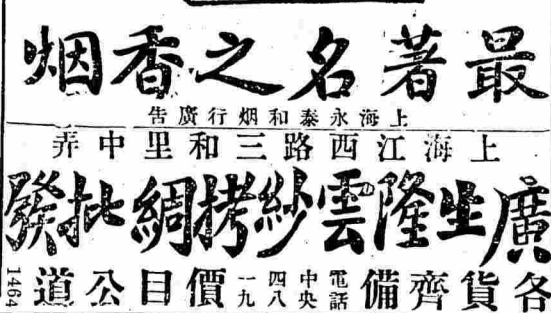 最著名之香烟
上海永泰和烟行廣告
上海江西路三和里中弄
廣生隆雲紗拷綢批發
各貨齊備 電話中央四八一九 價目公道
1464